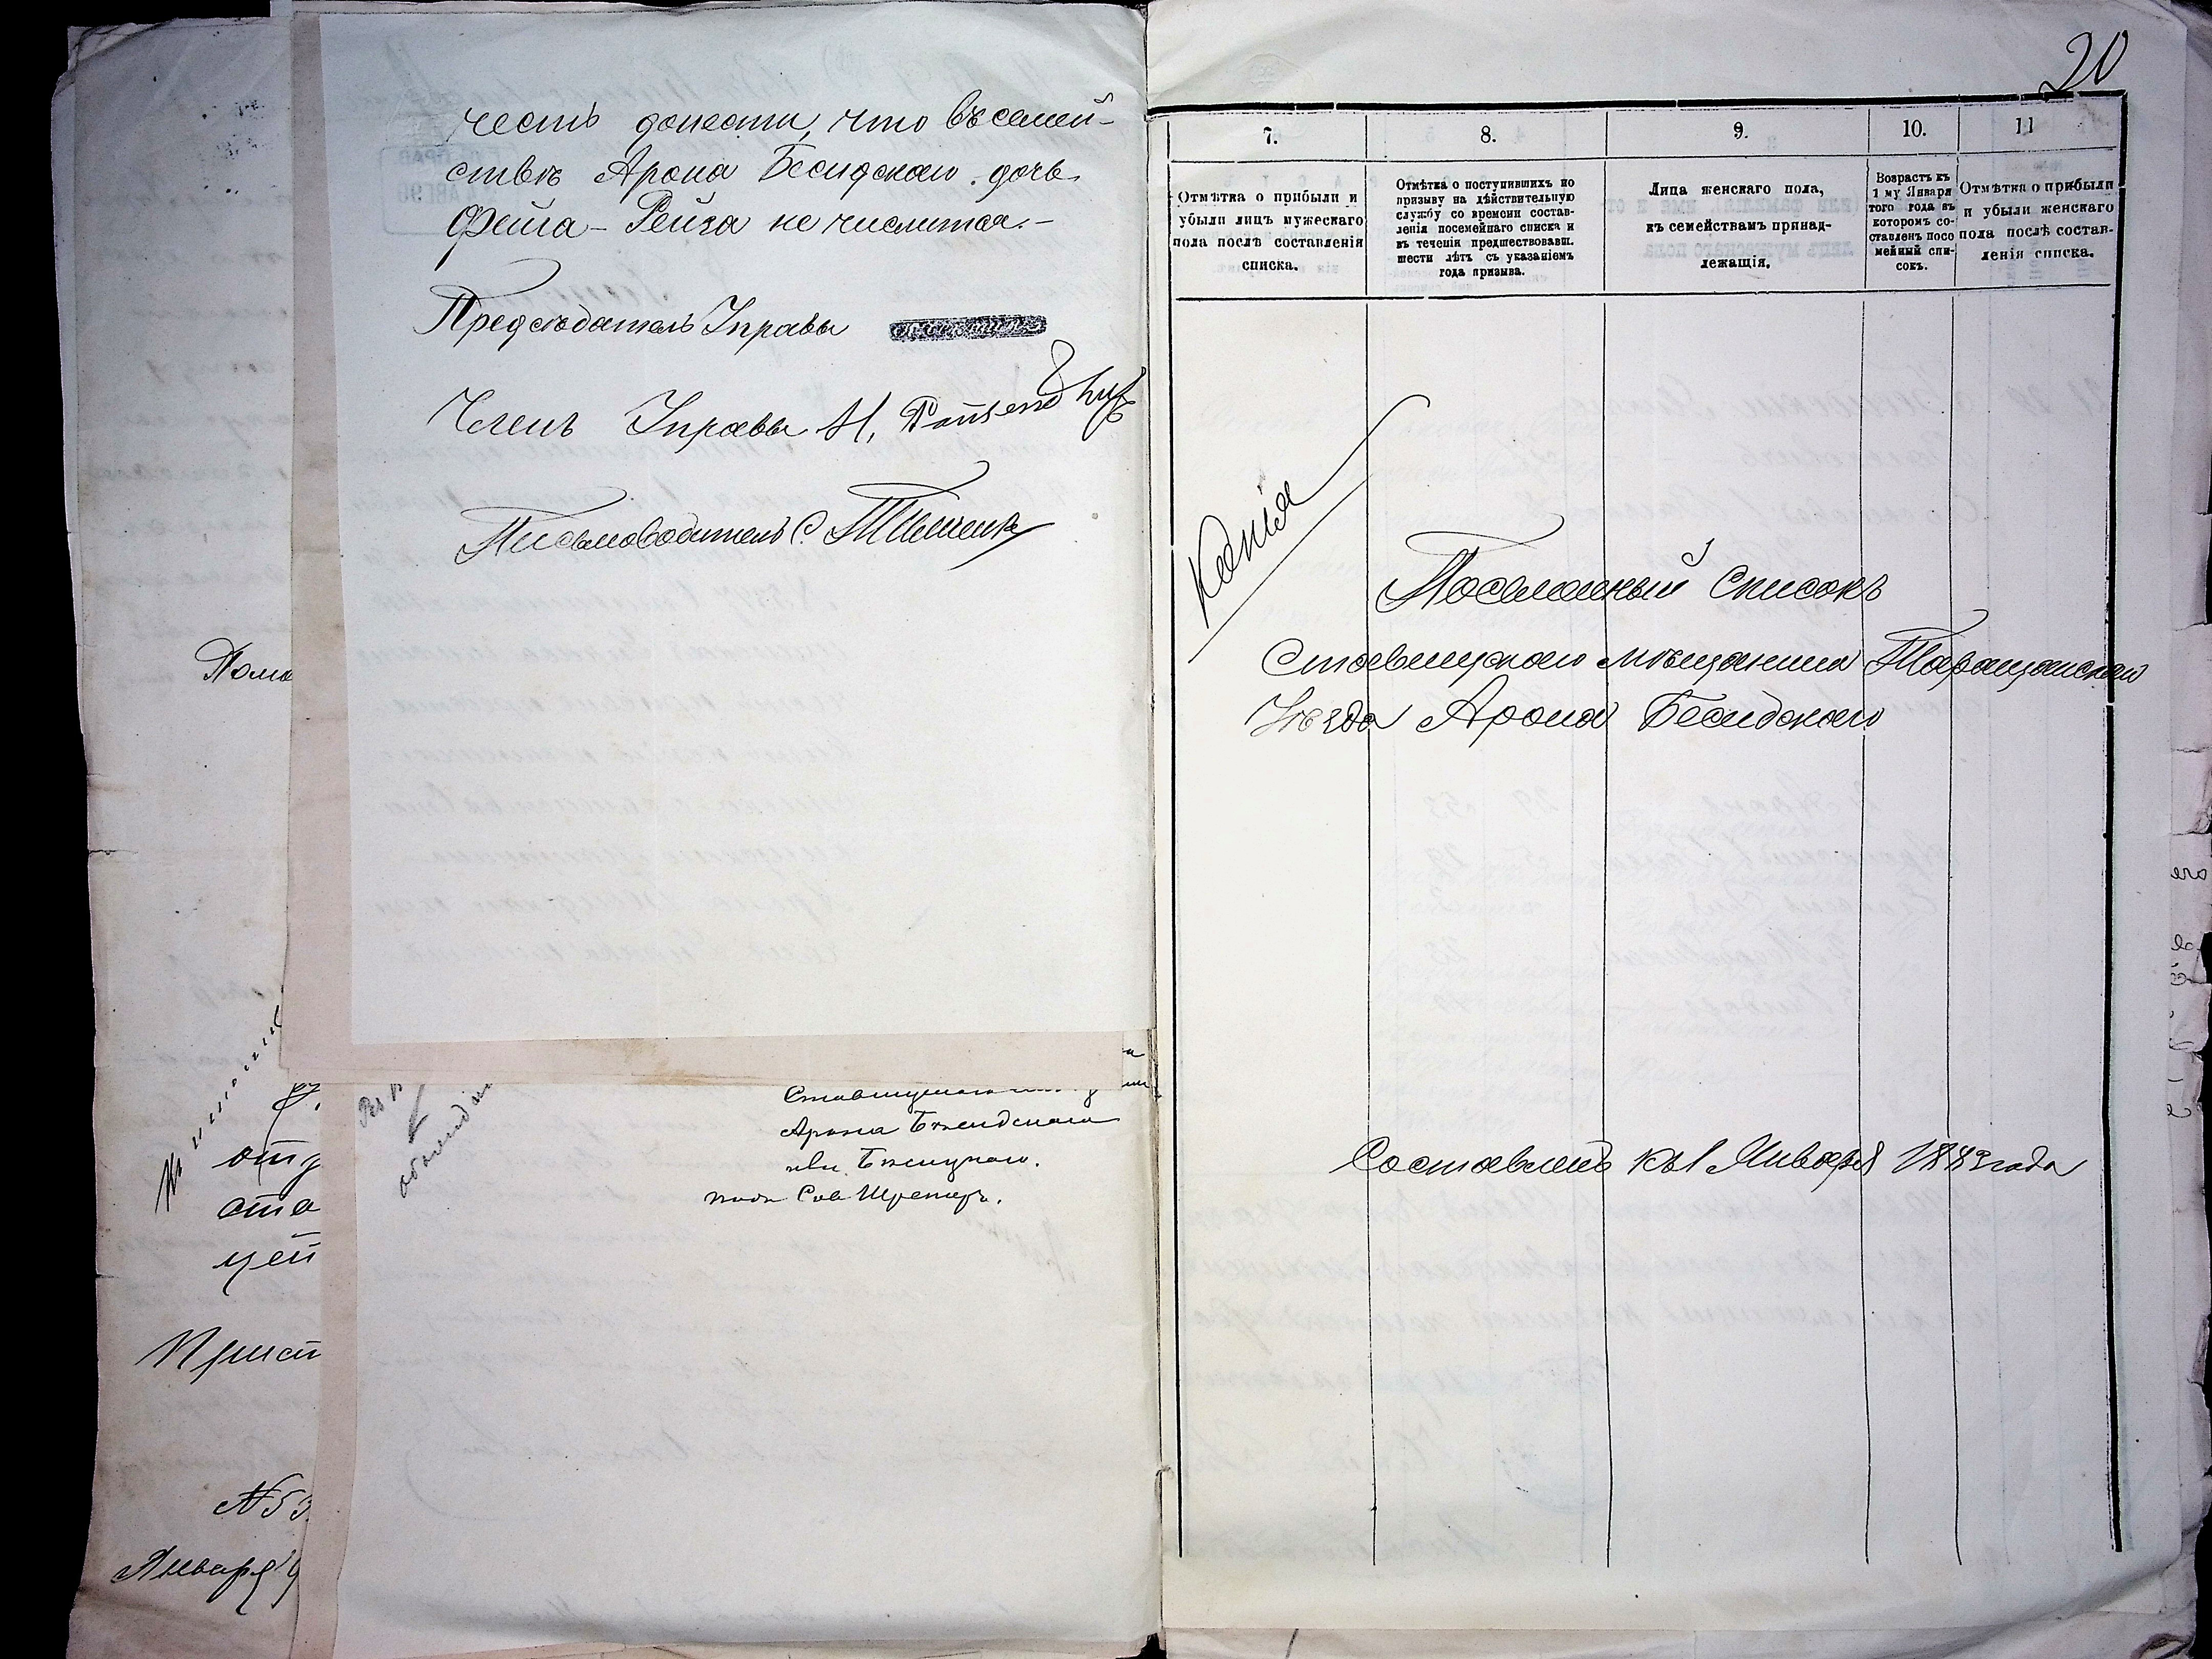 честь донести, что въ семей-
ствѣ Арона Бесидскаго дочь
Фейга-Рейза не числится.-
Предсѣдатель Управы
Членъ Управы И.
Письмоводитель С.
Ставищскаго
Арона Бѣсидскаго
или Бѣсицкаго.
отд
ста
цей
Прист
№ 53
Января
20
7. 8. 9. 10. 11
Отмѣтка о прибыли и
убыли лицъ мужескаго
пола послѣ составленія
списка.
Отмѣтка о поступившихъ по
призыву на дѣйствительную
службу со времени состав-
ленія посемейнаго списка и
въ теченіи предшествовавш.
шести лѣтъ съ указаніемъ
года призыва.
Лица женскаго пола,
къ семействамъ принад-
лежащія.
Возрастъ къ
1 му Января
того года въ
которомъ со-
ставленъ посе
мейный спи-
сокъ.
Отмѣтка о прибыли
и убыли женскаго
пола послѣ состав-
ленія списка.
Копія
Посемейный Списокъ
Ставищскаго мѣщанина Таращанскаго
Уѣзда Арона Бесидскаго
Составленъ къ 1 Января года